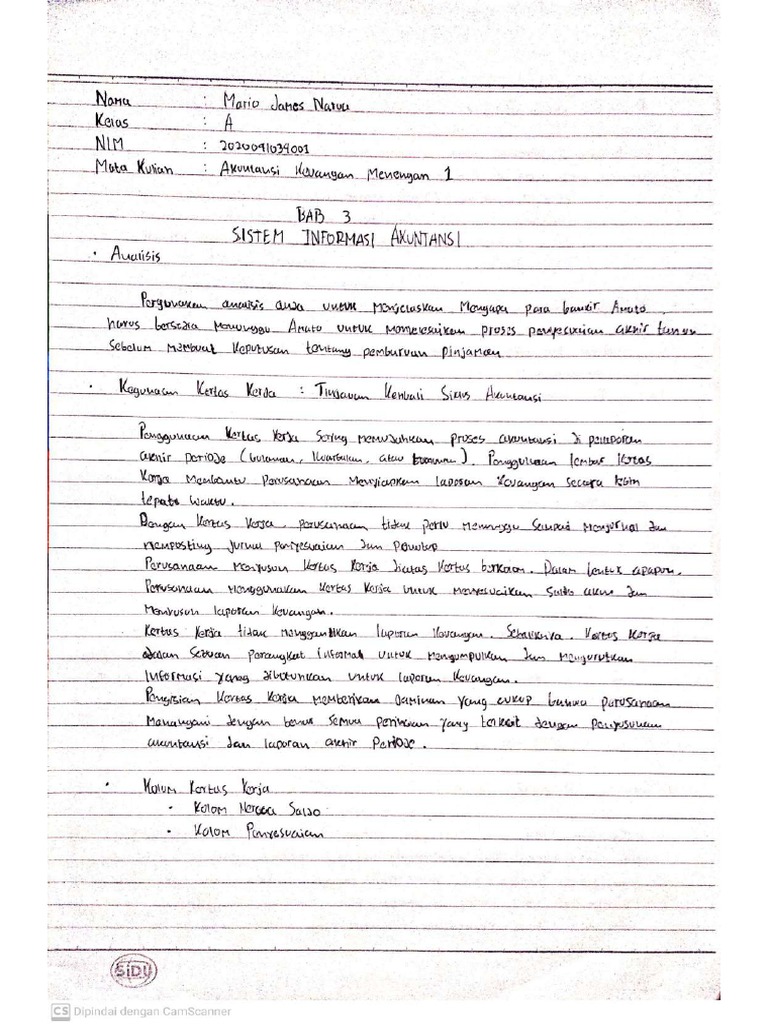 Nama : Mario James Naruu
Kelas : A
NIM : 2020091034001
Mata Kuliah : Akuntansi Keuangan Menengah 1
BAB 3
SISTEM INFORMASI AKUNTANSI
• Analisis
Pergunakan analisis anda untuk menjelaskan Mengapa para bankir Amato
harus bersedia menunggu Amato untuk menyelesaikan proses penyesuaian akhir tahun
Sebelum membuat keputusan tentang pemburuan Pinjaman
• Kegunaan Kertas Kerja : Tinjauan Kembali Siklus Akuntansi
Penggunaan Kertas Kerja Sering memudahkan proses akuntansi di pelaporan
akhir periode (bulanan, Kuartalan, atau tahunan). Penggunaan lembar Kertas
Kerja Membantu perusahaan Menyiapkan laporan Keuangan secara lebih
tepat waktu.
Dengan Kertas Kerja, perusahaan tidak perlu menunggu sampai Menjurnal dan
memposting jurnal penyesuaian dan Penutup
Perusahaan menyusun Kertas Kerja diatas Kertas berkolom. Dalam bentuk apapun.
Perusahaan menggunakan Kertas Kerja untuk menyesuaikan Saldo akun dan
Menyusun laporan Keuangan.
Kertas Kerja tidak menggantikan laporan Keuangan. Sebaliknya. Kertas Kerja
adalah Satuan Perangkat informal untuk mengumpulkan dan mengurutkan
Informasi yang dibutuhkan untuk laporan Keuangan.
Pengisian Kertas Kerja memberikan Jaminan yang cukup bahwa perusahaan
Menangani dengan benar semua perincian yang terkait dengan Penyusunan
akuntansi dan laporan akhir Periode.
• Kolom Kertas Kerja
• Kolom Neraca Saldo
• Kolom Penyesuaian
SiDU
CS Dipindai dengan CamScanner